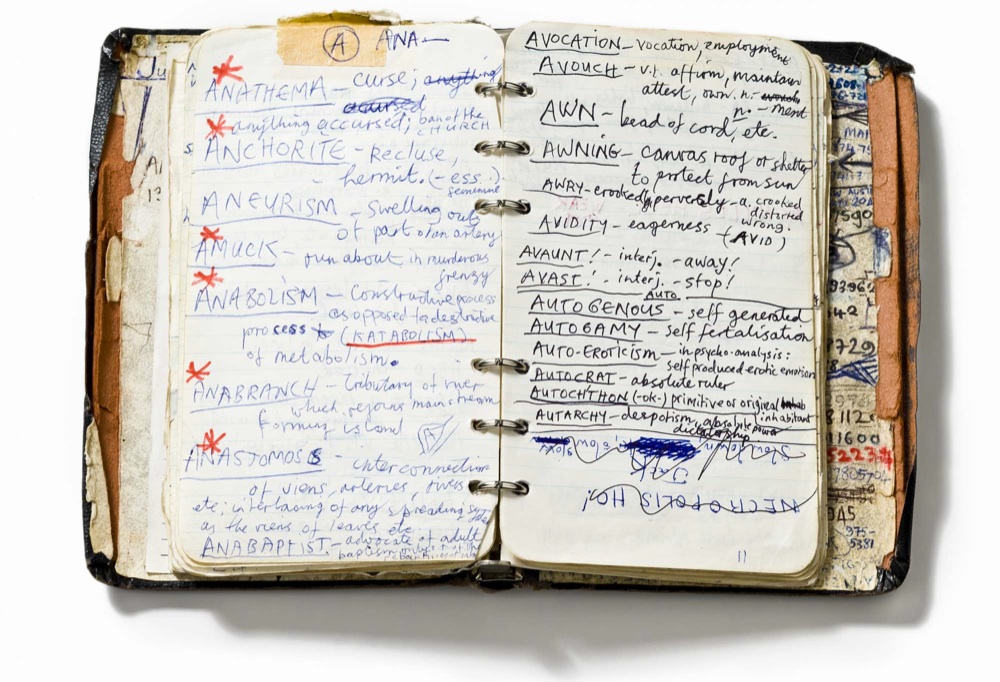 A ANA—
ANATHEMA – curse; anything
accursed
anything accursed; ban of the
CHURCH
ANCHORITE – Recluse,
hermit. (-ess.)
feminine
ANEURISM – swelling out
of part of an artery
AMUCK – run about, in murderous
frenzy
ANABOLISM – Constructive process
as opposed to destructive
process (KATABOLISM)
of metabolism.
ANABRANCH – Tributary of river
which rejoins main stream
forming island
A
ANASTOMOSS – interconnection
of viens, arteries, rivers
etc; interlacing of any spreading
as the viens of leaves etc.
ANABAPTIST – advocate of adult
baptism
AVOCATION – vocation, employment
AVOUCH – v.t. affirm, maintain
attest, own. n.
n. – ment
AWN – bead of cord, etc.
AWNING – canvas roof or shelter
to protect from sun
AWRY – crookedly, perversely – a. crooked
distorted
wrong.
AVIDITY – eagerness – (AVID)
AVAUNT! – interj. – away!
AVAST! – interj. – stop!
AUTO.
AUTOGENOUS – self generated
AUTOGAMY – self fertalisation
AUTO-EROTICISM – in psycho-analysis:
self produced erotic emotion
AUTOCRAT – absolute ruler
AUTOCHTHON (-ok-) primitive or original
inhabitant
AUTARCHY – despotism, absolute power
dictatorship
NECROPOLIS HO!
11